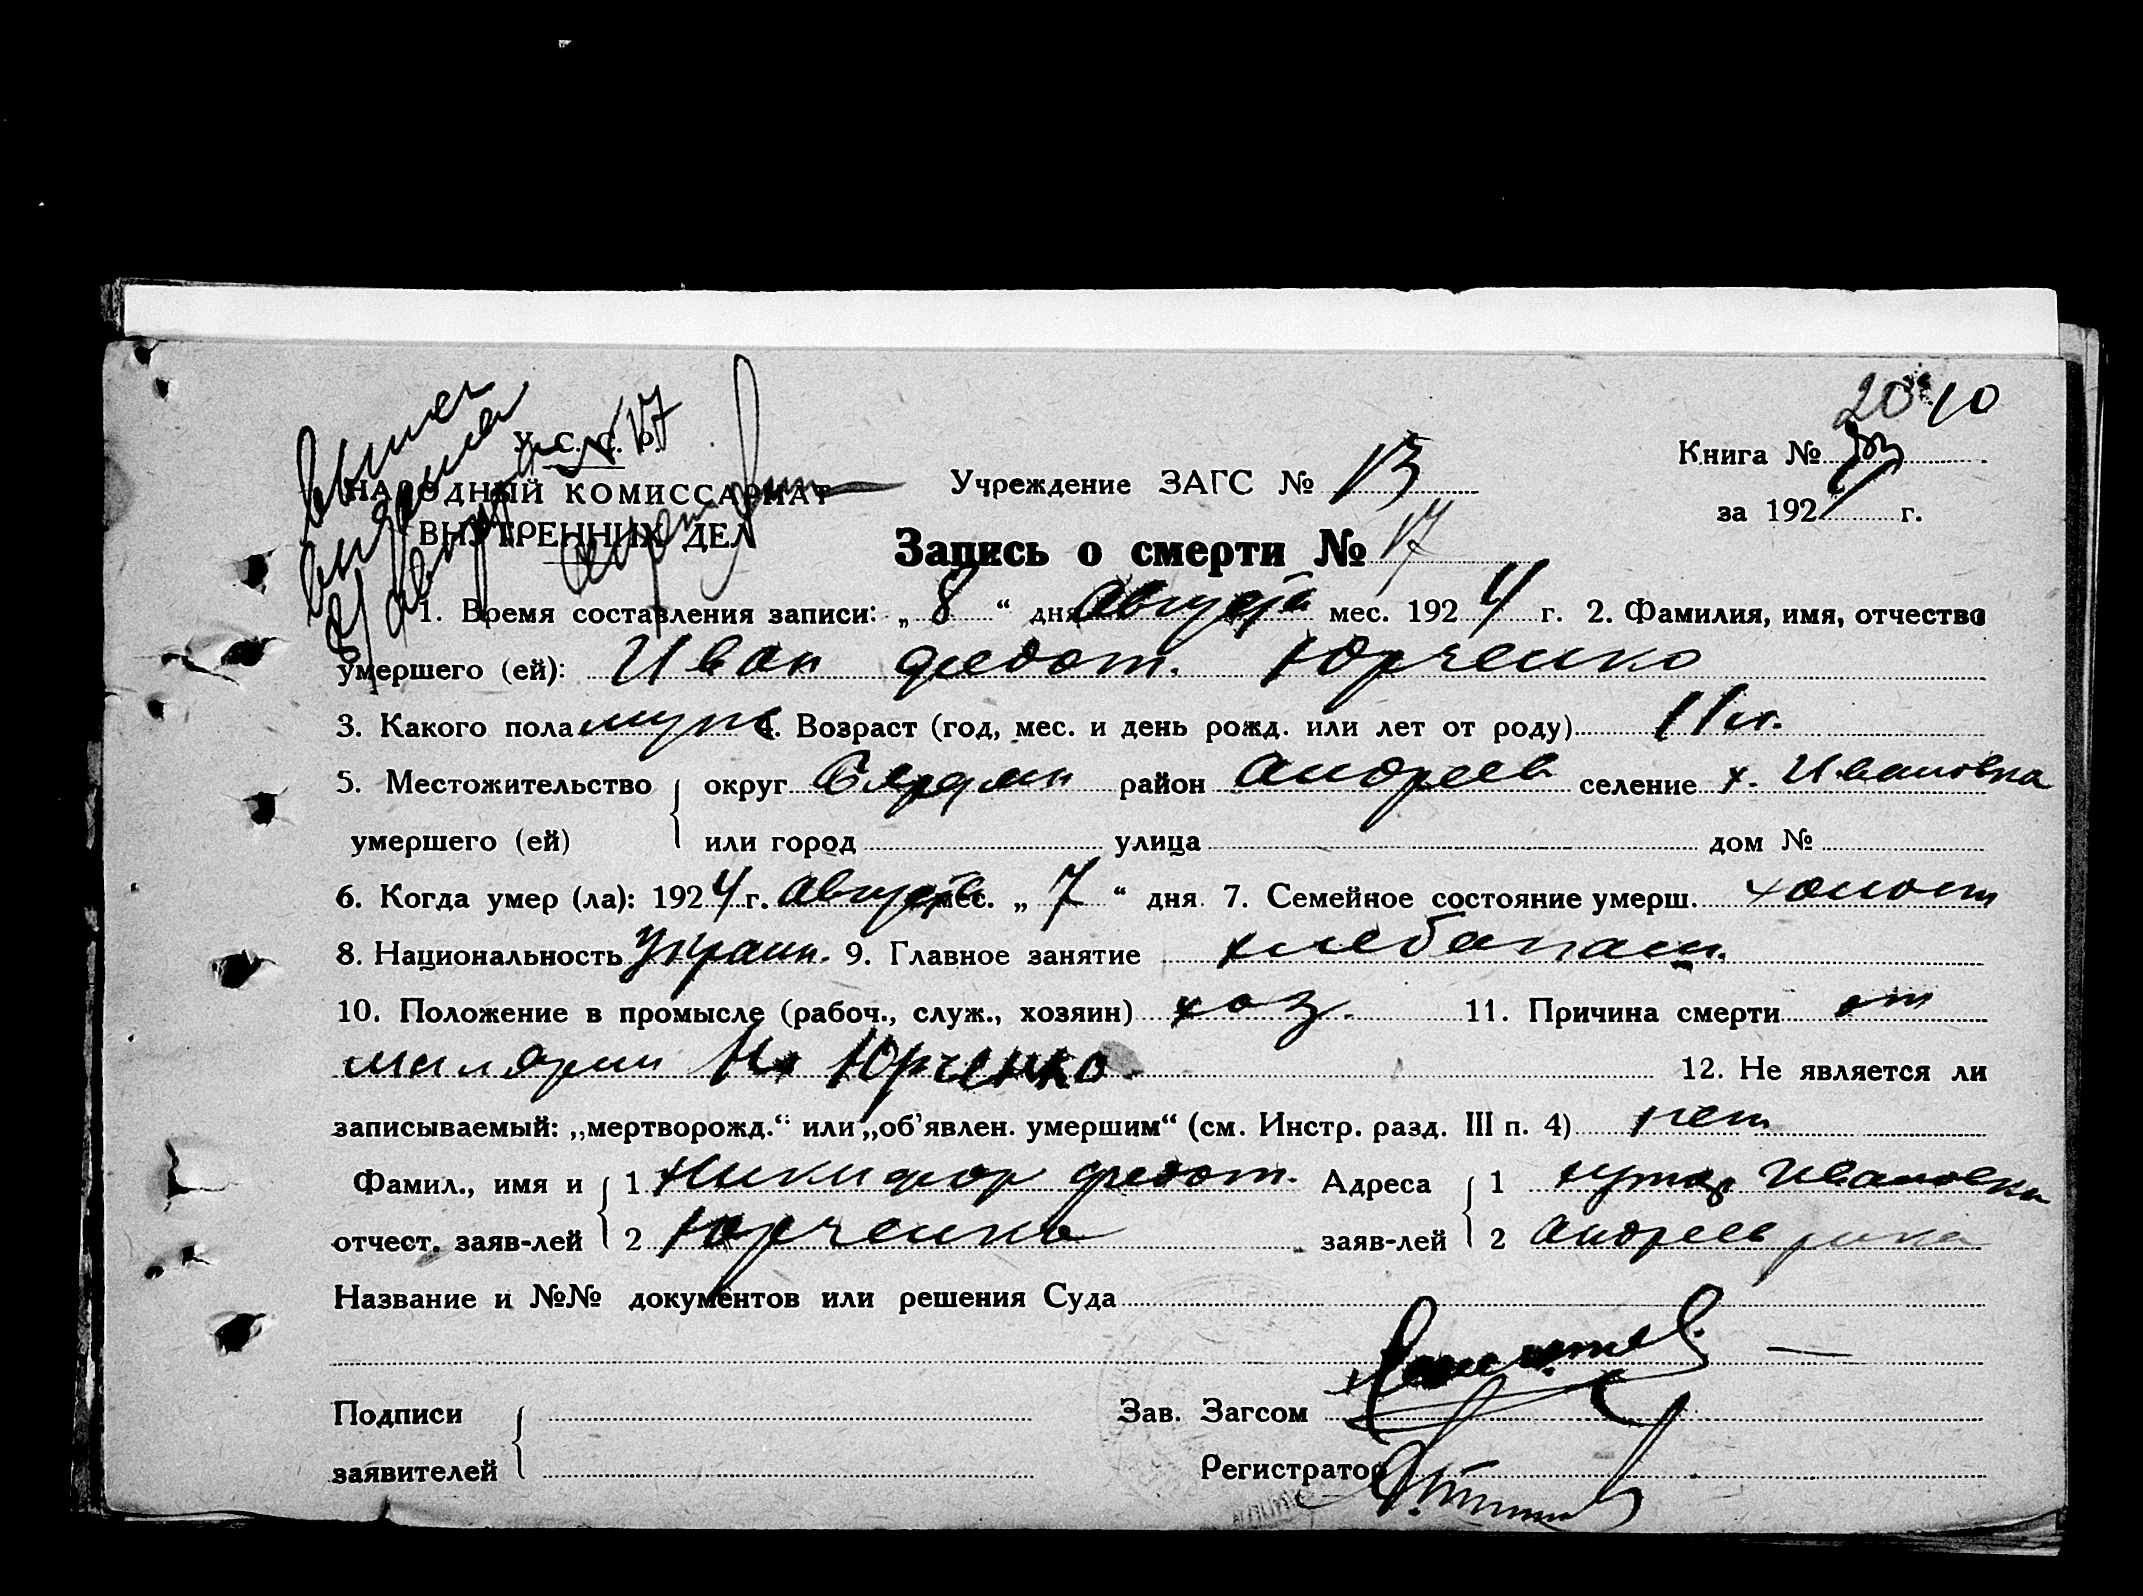 20 10
У. С. С. Р.
№ 17
Книга №
НАРОДНЫЙ КОМИССАРИАТ
ВНУТРЕННИХ ДЕЛ
Учреждение ЗАГС № 13
за 1924 г.
Запись о смерти № 17
1. Время составления записи: „ 8 “ дня Августа мес. 1924 г. 2. Фамилия, имя, отчество
умершего (ей): Иван Федот. Юрченко
3. Какого пола муж 4. Возраст (год, мес. и день рожд. или лет от роду) 11 л.
5. Местожительство умершего (ей) округ Бердян район Андреев селение х. Ивановка
или город улица дом №
6. Когда умер (ла): 1924 г. Августа мес. „ 7 “ дня 7. Семейное состояние умерш. холост
8. Национальность Украин. 9. Главное занятие хлебопаш.
10. Положение в промысле (рабоч., служ., хозяин) хоз. 11. Причина смерти от
малярии Н. Юрченко 12. Не является ли
записываемый: „мертворожд.“ или „об’явлен. умершим“ (см. Инстр. разд. III п. 4) нет
Фамил., имя и отчест. заяв-лей 1 Никифор Федот. Адреса заяв-лей 1 хутор Ивановка
2 Юрченко 2 Андреев р-на
Название и №№ документов или решения Суда
Подписи заявителей
Зав. Загсом
Регистратор